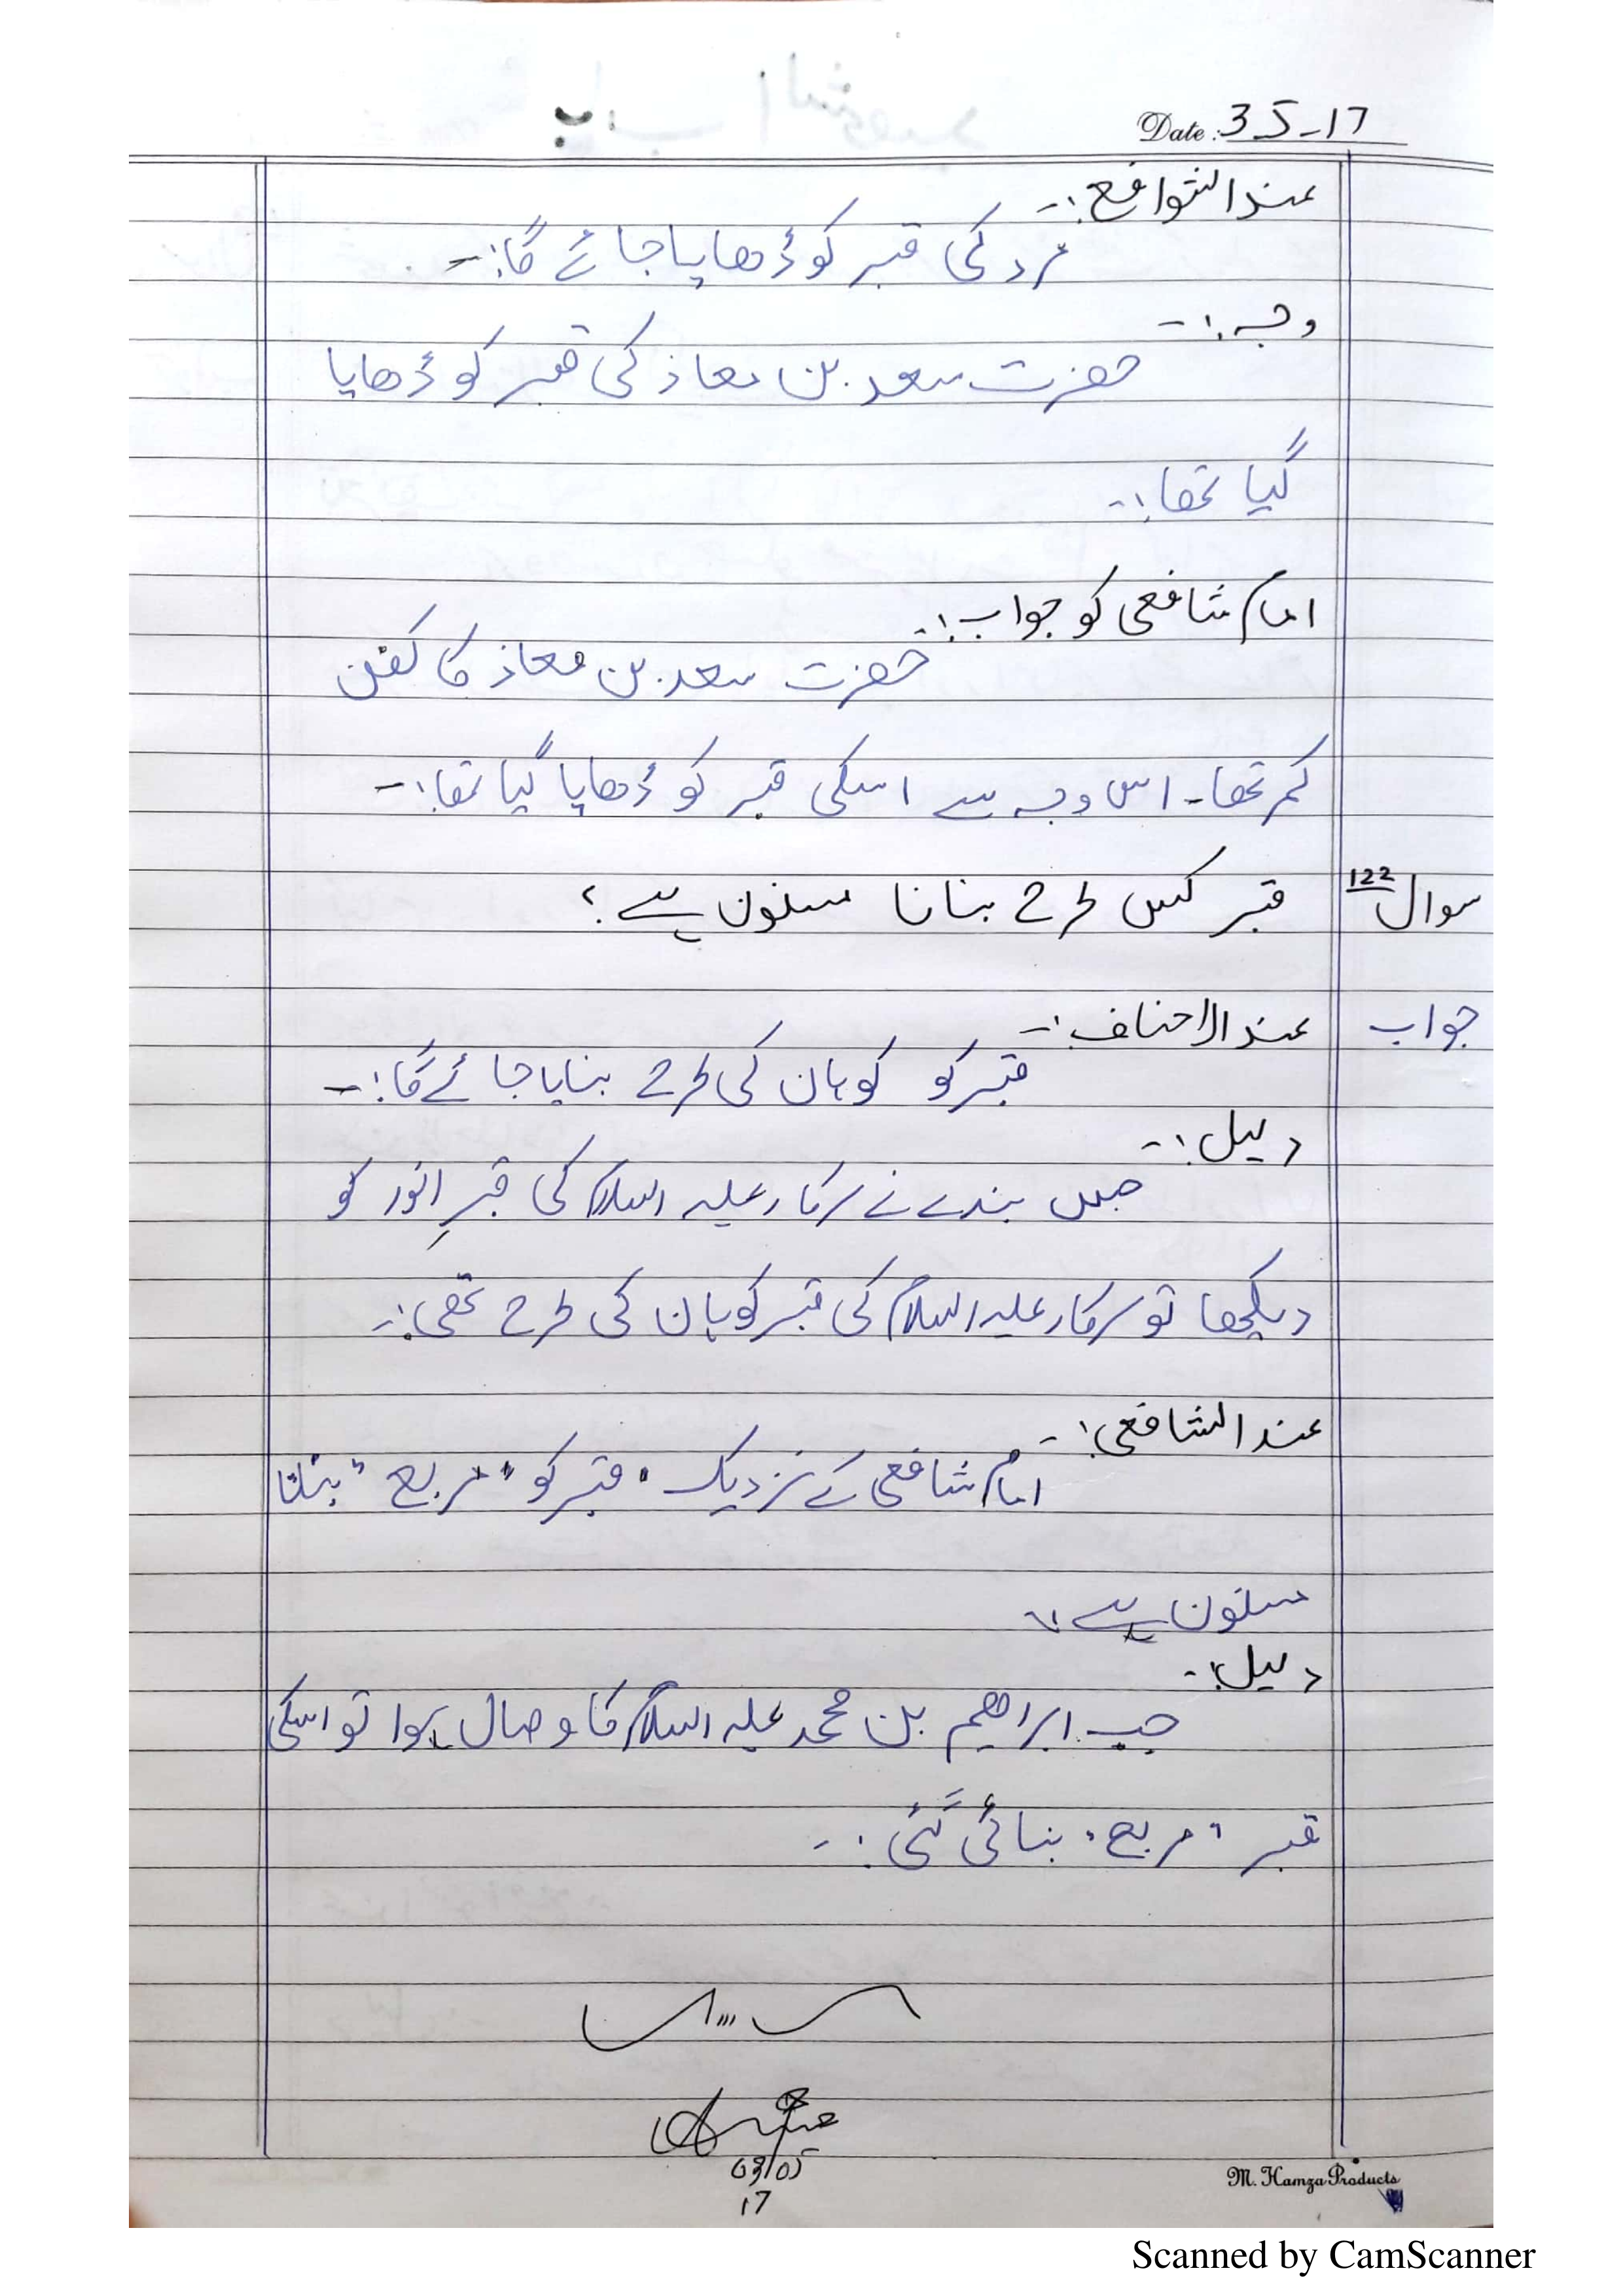 Date: 3-5-17
عند الشوافع:-
مرد کی قبر کو ڈھاپا جائے گا:-
وجہ:-
حضرت سعد بن معاذ کی قبر کو ڈھاپا
گیا تھا:-
امام شافعی کو جواب:-
حضرت سعد بن معاذ کا کفن
کم تھا۔ اس وجہ سے اسکی قبر کو ڈھاپا گیا تھا:-
سوال 122 قبر کس طرح بنانا مسنون ہے؟
جواب عند الاحناف:-
قبر کو کوہان کی طرح بنایا جائے گا:-
دلیل:-
جس بندے نے سرکار علیہ السلام کی قبرِ انور کو
دیکھا تو سرکار علیہ السلام کی قبر کوہان کی طرح تھی:-
عند الشافعی:-
امام شافعی کے نزدیک قبر کو "مربع" بنانا
مسنون ہے:-
دلیل:-
جب ابراھیم بن محمد علیہ السلام کا وصال ہوا تو اسکی
قبر "مربع" بنائی گئی:-
03/05
17
M. Hamza Products
Scanned by CamScanner